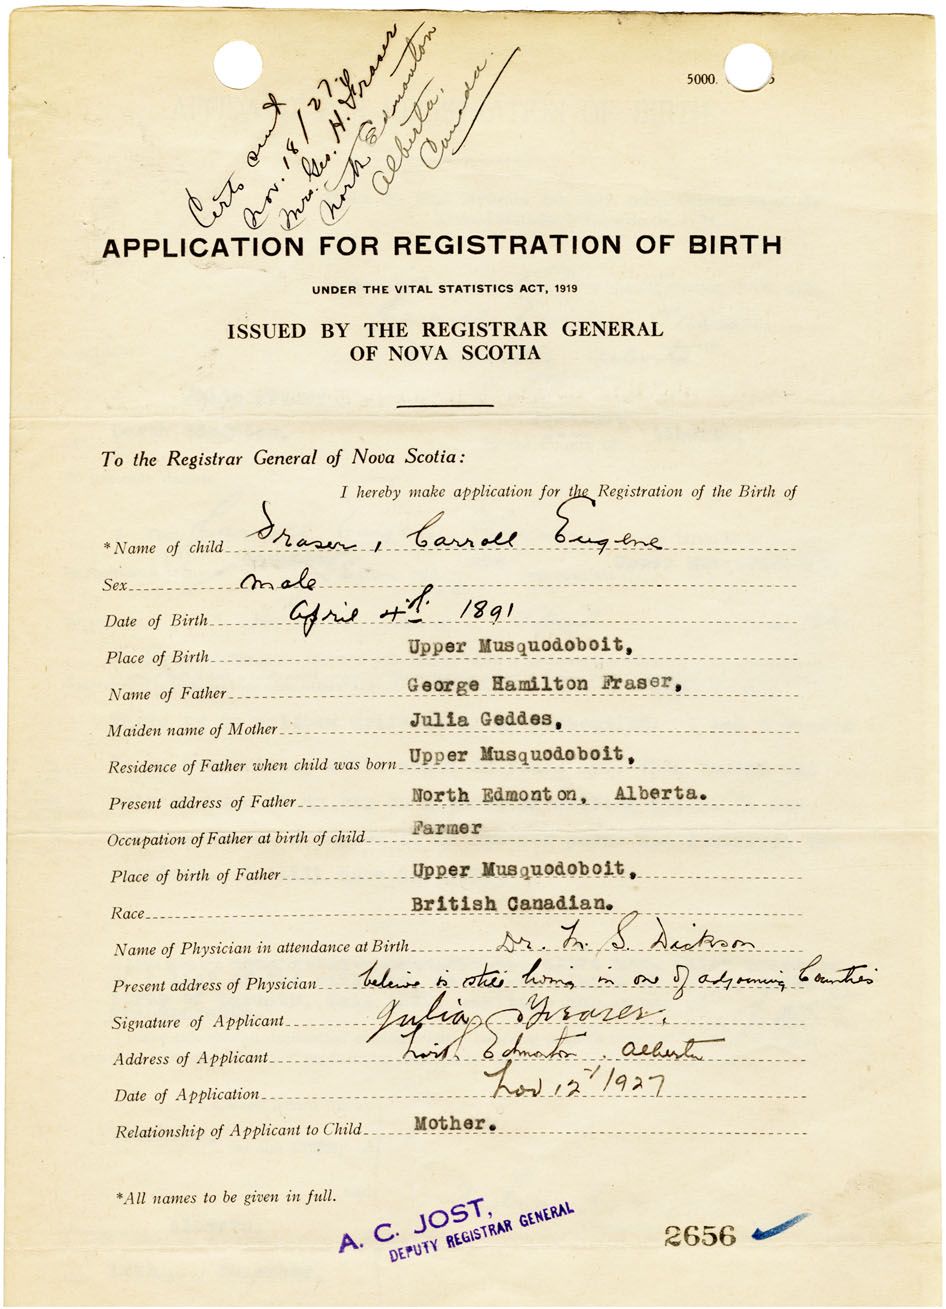 5000.
Certs sent
Nov. 18/27.
Mrs. Geo. H. Fraser
North Edmonton
Alberta,
Canada.
APPLICATION FOR REGISTRATION OF BIRTH
UNDER THE VITAL STATISTICS ACT, 1919
ISSUED BY THE REGISTRAR GENERAL
OF NOVA SCOTIA
To the Registrar General of Nova Scotia:
I hereby make application for the Registration of the Birth of
*Name of child Fraser, Carroll Eugene
Sex male
Date of Birth April 4th. 1891
Place of Birth Upper Musquodoboit,
Name of Father George Hamilton Fraser,
Maiden name of Mother Julia Geddes,
Residence of Father when child was born Upper Musquodoboit,
Present address of Father North Edmonton, Alberta.
Occupation of Father at birth of child Farmer
Place of birth of Father Upper Musquodoboit,
Race British Canadian.
Name of Physician in attendance at Birth Dr. M. S. Dickson
Present address of Physician believe is still living in one of adjoining Counties
Signature of Applicant Julia Fraser.
Address of Applicant North Edmonton. Alberta
Date of Application Nov 12 1927
Relationship of Applicant to Child Mother.
*All names to be given in full.
A. C. JOST,
DEPUTY REGISTRAR GENERAL
2656